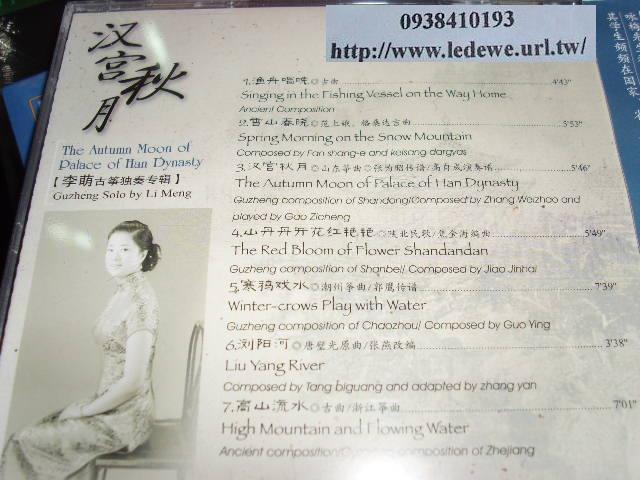 0938410193
http://www.ledewe.url.tw/
汉宫秋月
The Autumn Moon of
Palace of Han Dynasty
【李萌古筝独奏专辑】
Guzheng Solo by Li Meng
1.渔舟唱晚◎古曲 4'43"
Singing in the Fishing Vessel on the Way Home
Ancient Composition
2.雪山春晓◎范上娥、格桑达吉曲 5'53"
Spring Morning on the Snow Mountain
Composed by Fan shang-e and keisang dargyas
3.汉宫秋月◎山东筝曲/张为昭传谱/高自成演奏谱 5'46"
The Autumn Moon of Palace of Han Dynasty
Guzheng composition of Shandong/Composed by Zhang Weizhao and
played by Gao Zicheng
4.山丹丹开花红艳艳◎陕北民歌/焦金海编曲 5'49"
The Red Bloom of Flower Shandandan
Guzheng composition of Shanbei/ Composed by Jiao Jinhai
5.寒鸦戏水◎潮州筝曲/郭鹰传谱 7'39"
Winter-crows Play with Water
Guzheng composition of Chaozhou/ Composed by Guo Ying
6.浏阳河◎唐璧光原曲/张燕改编 3'38"
Liu Yang River
Composed by Tang biguang and adapted by zhang yan
7.高山流水◎古曲/浙江筝曲 7'01"
High Mountain and Flowing Water
Ancient composition/Guzheng composition of Zhejiang